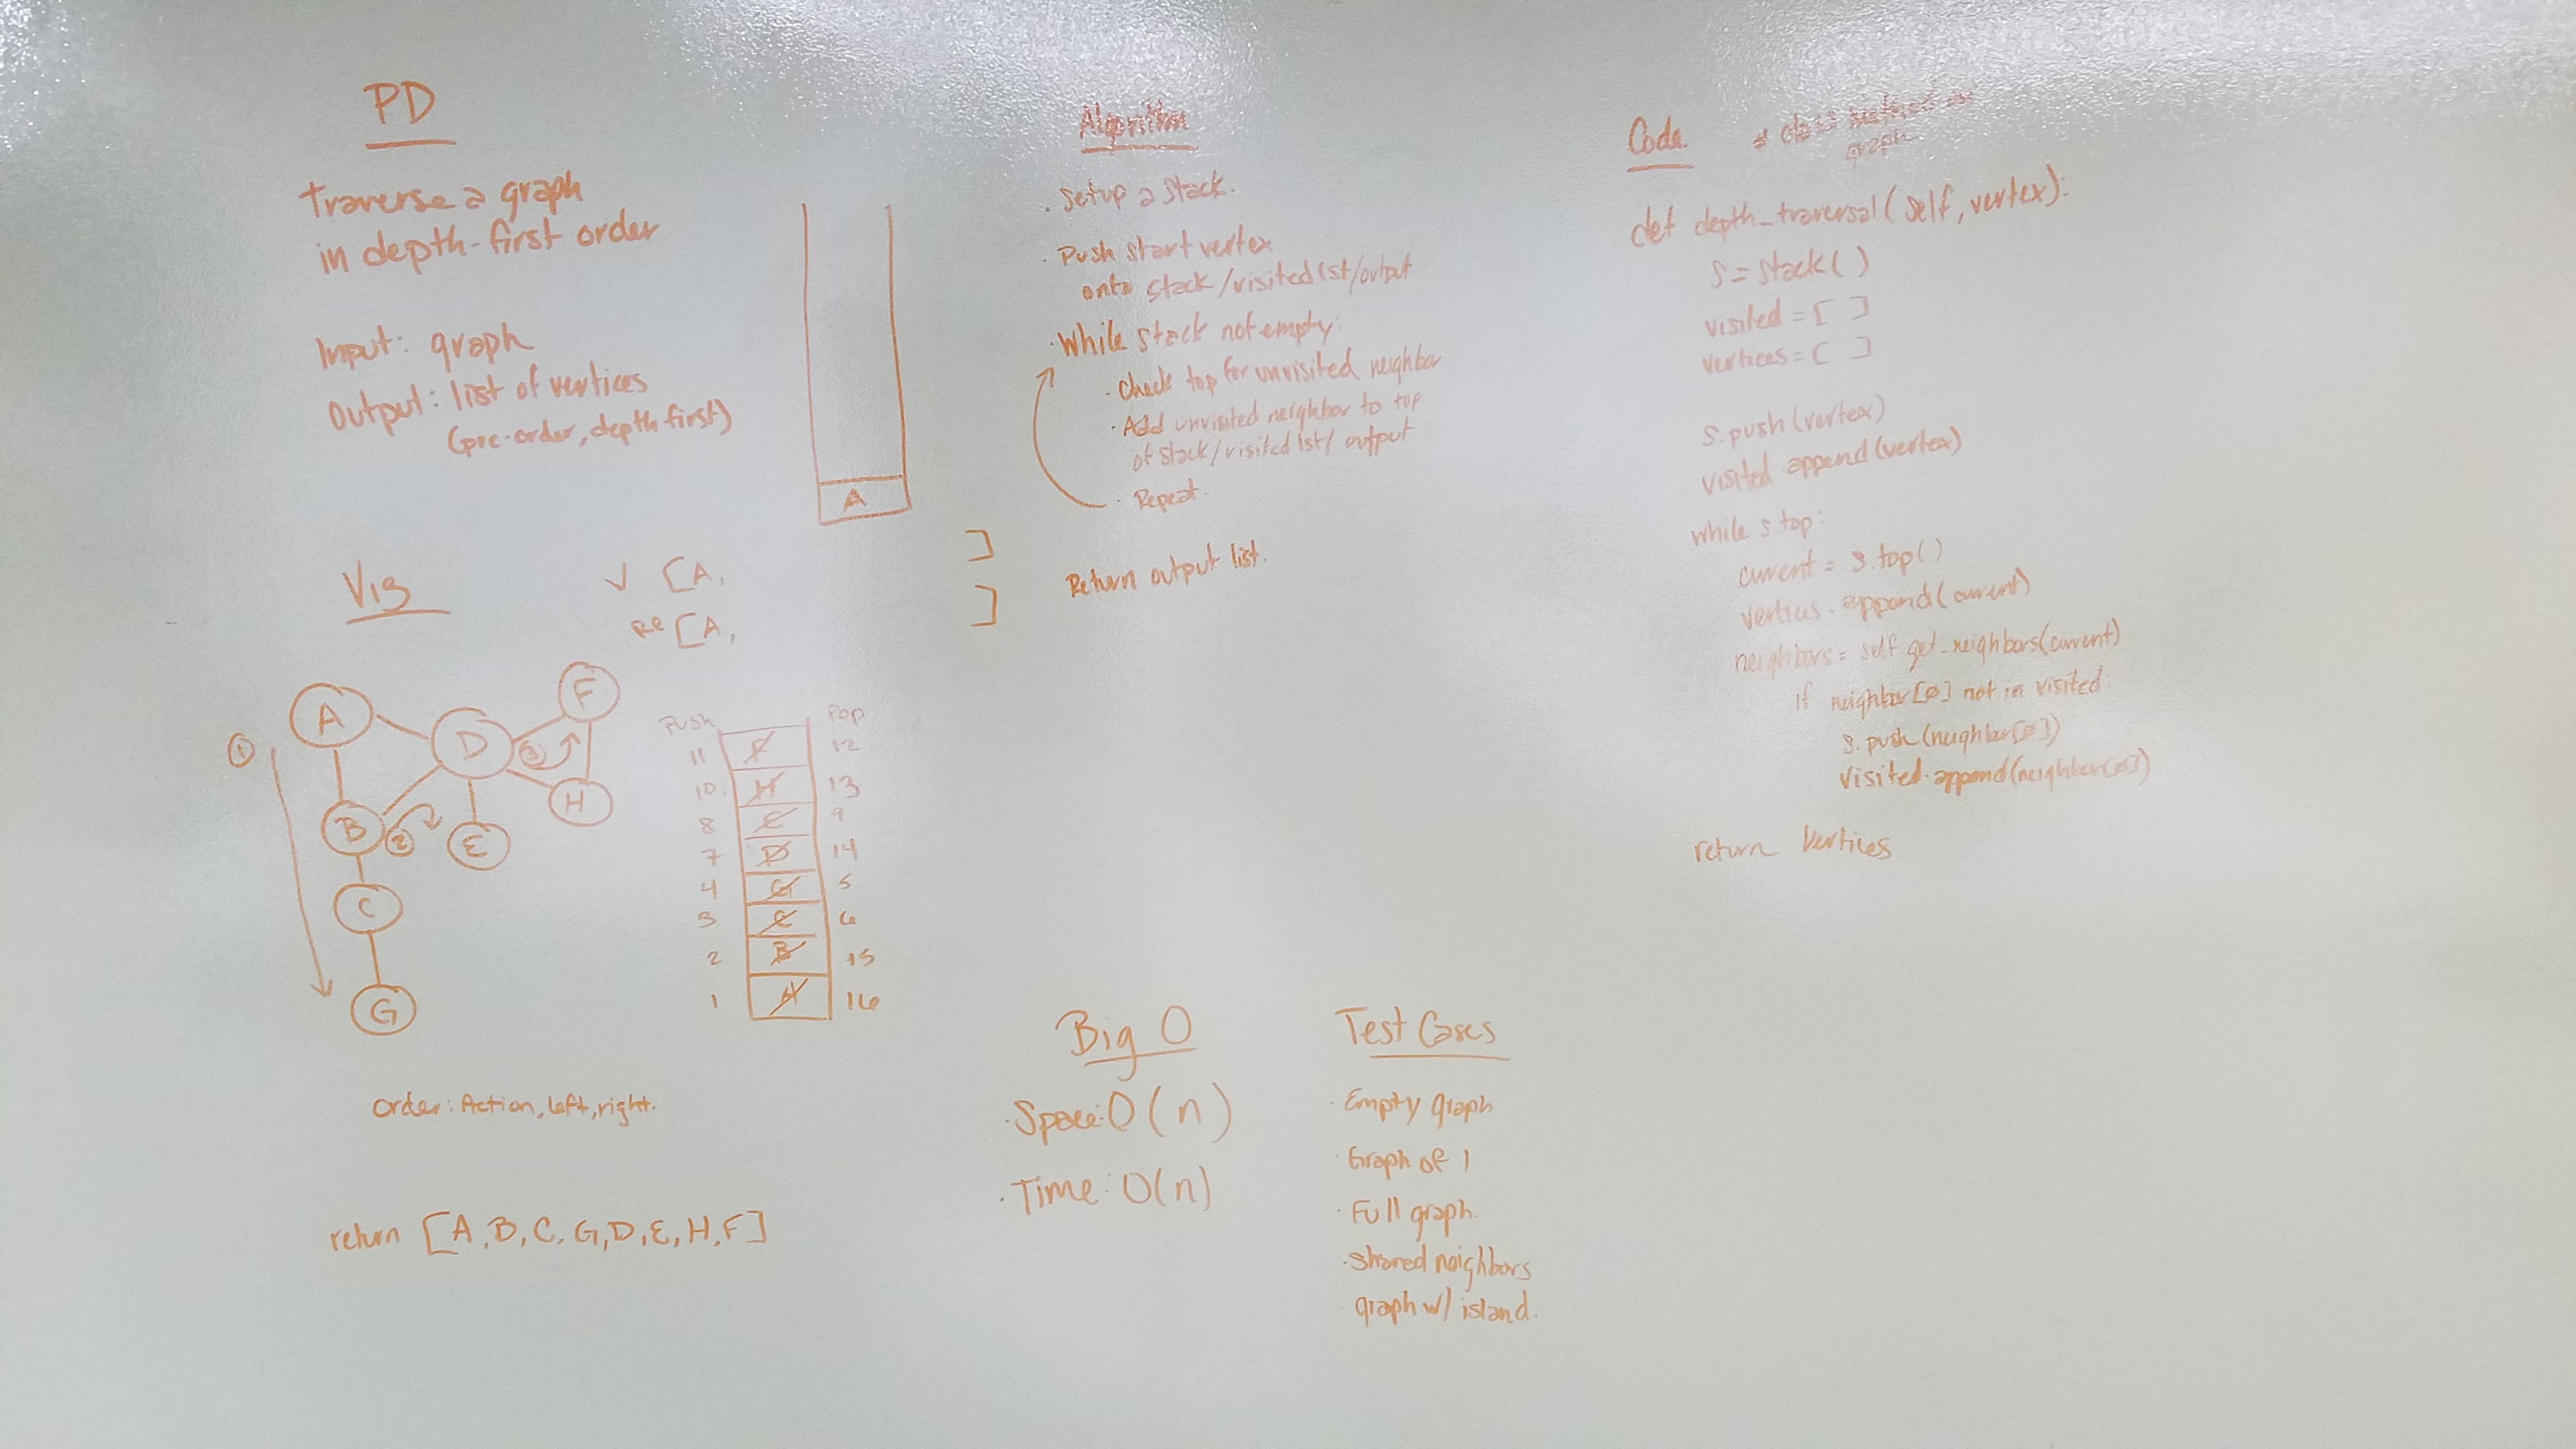 PD
Traverse a graph
in depth-first order
Input: graph
Output: list of vertices
(pre-order, depth first)
A
Vis
√ [A, ]
Re [A, ]
A
B
C
G
D
E
F
H
①
②
③
Push Pop
11 F 12
10 H 13
8 E 9
7 D 14
4 G 5
3 C 6
2 B 15
1 A 16
order: Action, left, right.
return [A, B, C, G, D, E, H, F]
Algorithm
· Setup a Stack.
· Push start vertex
onto stack/visited lst/output
· While stack not empty:
· Check top for unvisited neighbor
· Add unvisited neighbor to top
of stack/visited lst/ output
· Repeat.
Return output list.
Big O
· Space: O(n)
· Time: O(n)
Test Cases
· Empty graph
· Graph of 1
· Full graph.
· Shared neighbors
· graph w/ island.
Code # class method on
graph
def depth_traversal(self, vertex):
S = Stack( )
visited = [ ]
vertices = [ ]
S.push(vertex)
visited.append(vertex)
while s.top:
current = s.top()
vertices.append(current)
neighbors = self.get_neighbors(current)
if neighbor[0] not in visited:
s.push(neighbor[0])
visited.append(neighbor[0])
return vertices